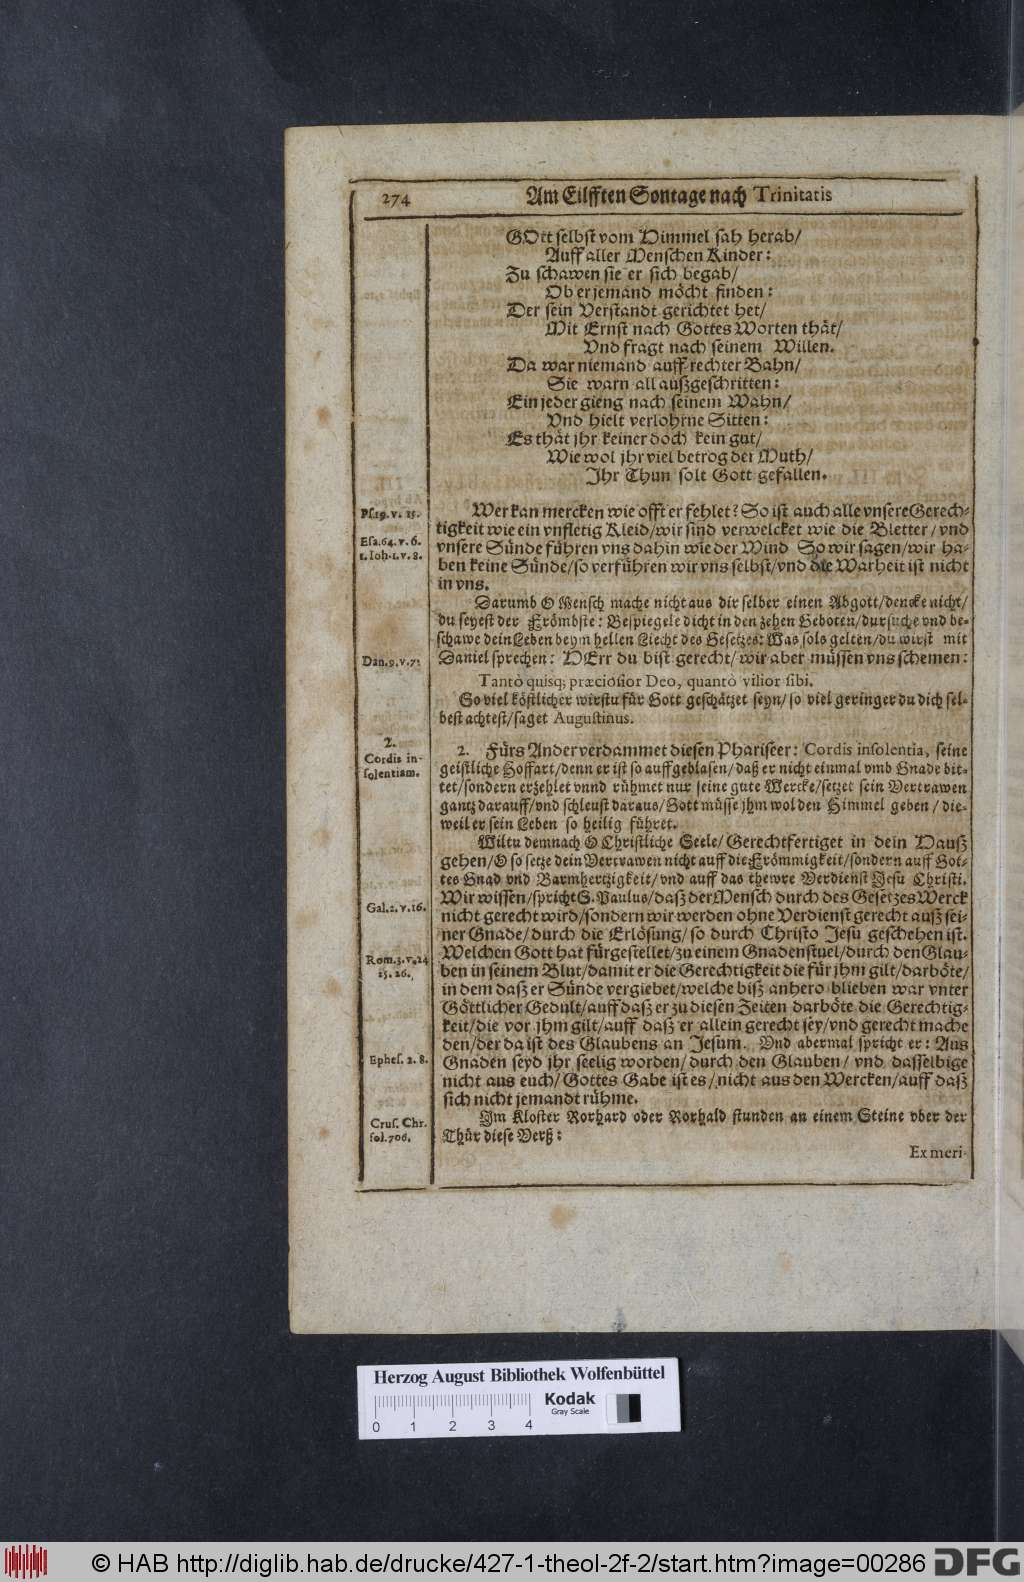 274
Am Eilfften Sontage nach Trinitatis
GOtt selbst vom Himmel sah herab/
Auff aller Menschen Kinder:
Zu schawen sie er sich begab/
Ob er jemand möcht finden:
Der sein Verstandt gerichtet het/
Mit Ernst nach Gottes Worten thät/
Vnd fragt nach seinem Willen.
Da war niemand auff rechter Bahn/
Sie warn all außgeschritten:
Ein jeder gieng nach seinem Wahn/
Vnd hielt verlohrne Sitten:
Es thät jhr keiner doch kein gut/
Wie wol jhr viel betrog der Muth/
Jhr Thun solt Gott gefallen.
Ps.19. v. 15.
Wer kan mercken wie offt er fehlet? So ist auch alle vnsere Gerech-
tigkeit wie ein vnfletig Kleid/wir sind verwelcket wie die Bletter/vnd
Esa.64. v. 6.
vnsere Sünde führen vns dahin wie der Wind So wir sagen/wir ha-
1. Ioh.1.v.8.
ben keine Sünde/so verführen wir vns selbst/vnd die Warheit ist nicht
in vns.
Darumb O Mensch mache nicht aus dir selber einen Abgott/dencke nicht/
du seyest der Frömbste: Bespiegele dich in den zehen Geboten/dursuche vnd be-
schawe dein Leben beym hellen Liecht des Gesetzes: Was sols gelten/du wirst mit
Dan.9.v.7:
Daniel sprechen: HErr du bist gerecht/wir aber müssen vns schemen:
Tantò quisq; præciosior Deo, quantò vilior sibi.
So viel köstlicher wirstu für Gott geschätzet seyn/so viel geringer du dich sel-
best achtest/saget Augustinus.
2.
Cordis in-
solentiam.
2. Fürs Ander verdammet diesen Phariseer: Cordis insolentia, seine
geistliche Hoffart/denn er ist so auffgeblasen/daß er nicht einmal vmb Gnade bit-
tet/sondern erzehlet vnnd rühmet nur seine gute Wercke/setzet sein Vertrawen
gantz darauff/vnd schleust daraus/Gott müsse jhm wol den Himmel geben/die-
weil er sein Leben so heilig führet.
Wiltu demnach O Christliche Seele/Gerechtfertiget in dein Hauß
gehen/O so setze dein Vertrawen nicht auff die Frömmigkeit/sondern auff Got-
tes Gnad vnd Barmhertzigkeit/vnd auff das thewre Verdienst Jesu Christi.
Gal.2.v.16.
Wir wissen/spricht S. Paulus/daß der Mensch durch des Gesetzes Werck
nicht gerecht wird/sondern wir werden ohne Verdienst gerecht auß sei-
ner Gnade/durch die Erlösung/so durch Christo Jesu geschehen ist.
Rom.3.v.24
25.26.
Welchen Gott hat fürgestellet/zu einem Gnadenstuel/durch den Glau-
ben in seinem Blut/damit er die Gerechtigkeit die für jhm gilt/darböte/
in dem daß er Sünde vergiebet/welche biß anhero blieben war vnter
Göttlicher Gedult/auff daß er zu diesen Zeiten darböte die Gerechtig-
keit/die vor jhm gilt/auff daß er allein gerecht sey/vnd gerecht mache
den/der da ist des Glaubens an Jesum. Vnd abermal spricht er: Aus
Ephes. 2. 8.
Gnaden seyd jhr seelig worden/durch den Glauben/vnd dasselbige
nicht aus euch/Gottes Gabe ist es/nicht aus den Wercken/auff daß
sich nicht jemandt rühme.
Crus. Chr.
fol.706.
Jm Kloster Rorhard oder Rorhald stunden an einem Steine vber der
Thür diese Verß:
Ex meri-
Herzog August Bibliothek Wolfenbüttel
0 1 2 3 4
Kodak
Gray Scale
© HAB http://diglib.hab.de/drucke/427-1-theol-2f-2/start.htm?image=00286
DFG